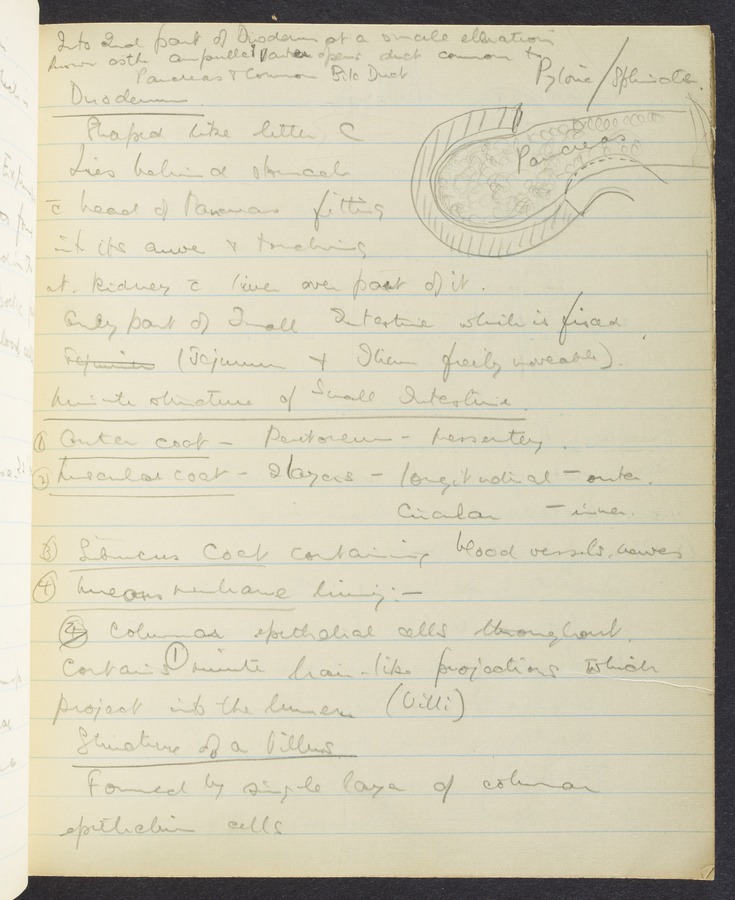 Into 2nd part of Duodenum at a small elevation
known as the ampulla Vater opens duct common to
Pancreas & Common Bile Duct
Pyloric Sphincter.
Duodenum
Shaped like letter C
Pancreas
Lies behind stomach
c̄ head of Pancreas fitting
into its curve & touching
rt. kidney c̄ liver over part of it.
Only part of Small Intestine which is fixed
(Jejunum & Ileum freely moveable).
Minute structure of Small Intestine.
① Outer coat - Peritoneum - Mesentery.
② Muscular coat - 2 layers - longitudinal - outer.
Circular - inner.
③ Submucus Coat containing blood vessels, nerves
④ Mucous membrane lining:-
② Columnar epithelial cells throughout.
Contains ① minute hair-like projections which
project into the lumen (Villi)
Structure of a Villus
Formed by single layer of columnar
epithelium cells